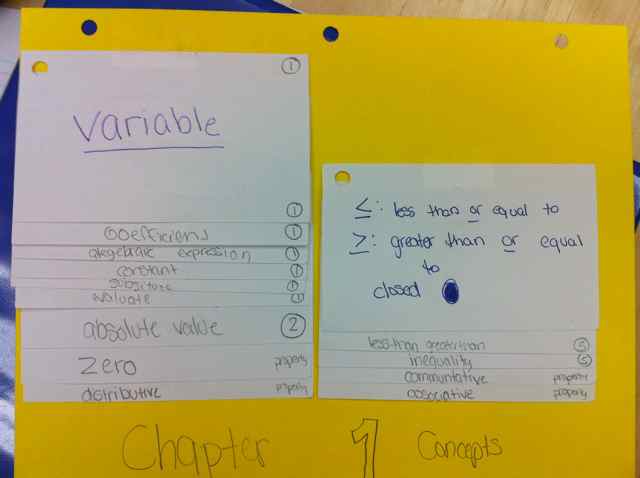 1
Variable
1
coefficient 1
algebraic expression 1
constant 1
substitute 1
evaluate 1
absolute value 2
zero property
distributive property
≤: less than or equal to
≥: greater than or equal
to
closed
less than greater than 5
inequality 5
commutative property
associative property
Chapter 1 Concepts